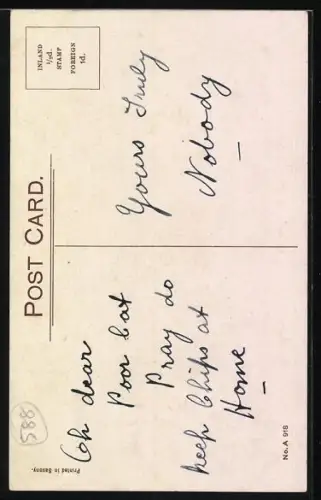 POST CARD.
INLAND
½d.
STAMP
FOREIGN
1d.
Oh dear
Poor Cat
Pray do
keep Chips at
Home
Yours Truly
Nobody
588
Printed in Saxony.
No. A 918